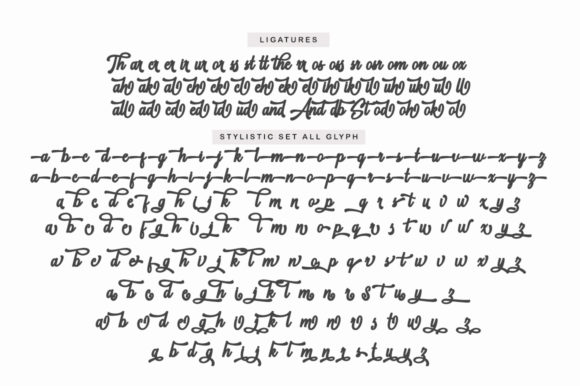 LIGATURES
Th an en er ir ur or is st tt the rr os oss sr osr om on ou ox
ah ak al ch ck cl eh ek el ih ik il uh uk ul ll
all ad cd ed id ud and And db St od oh ok ol
STYLISTIC SET ALL GLYPH
a b c d e f g h i j k l m n o p q r s t u v w x y z
a b c d e f g h i j k l m n o p q r s t u v w x y z
a b c d e f g h i j k l m n o p g r s t u v w x y z
a b c d e f g h i j k l m n o p g r s t u v w x y z
a b c d e f g h i j k l m n p q r s t u v w x y z
a b c d e g h i j k l m n r s t u y z
a b c d e g h i j k l m n r s t u y z
a b d g h i j k l m n r s t u y z